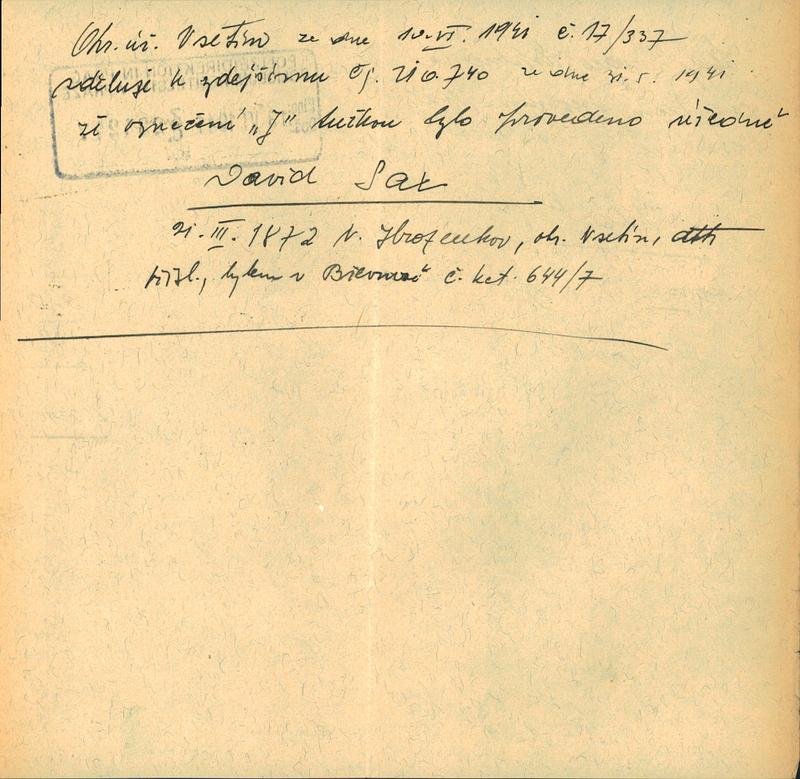 Okr. úř. Vsetín ze dne 10.VI. 1941 č. 17/337
sděluje k zdejšímu čj. 210.740 ze dne 21.5. 1941
že označení „J" tužkou bylo provedeno úředně
David Sax
21. III. 1872 N. Hrozenkov, okr. Vsetín,
přísl., bytem v č. kat. 644/7